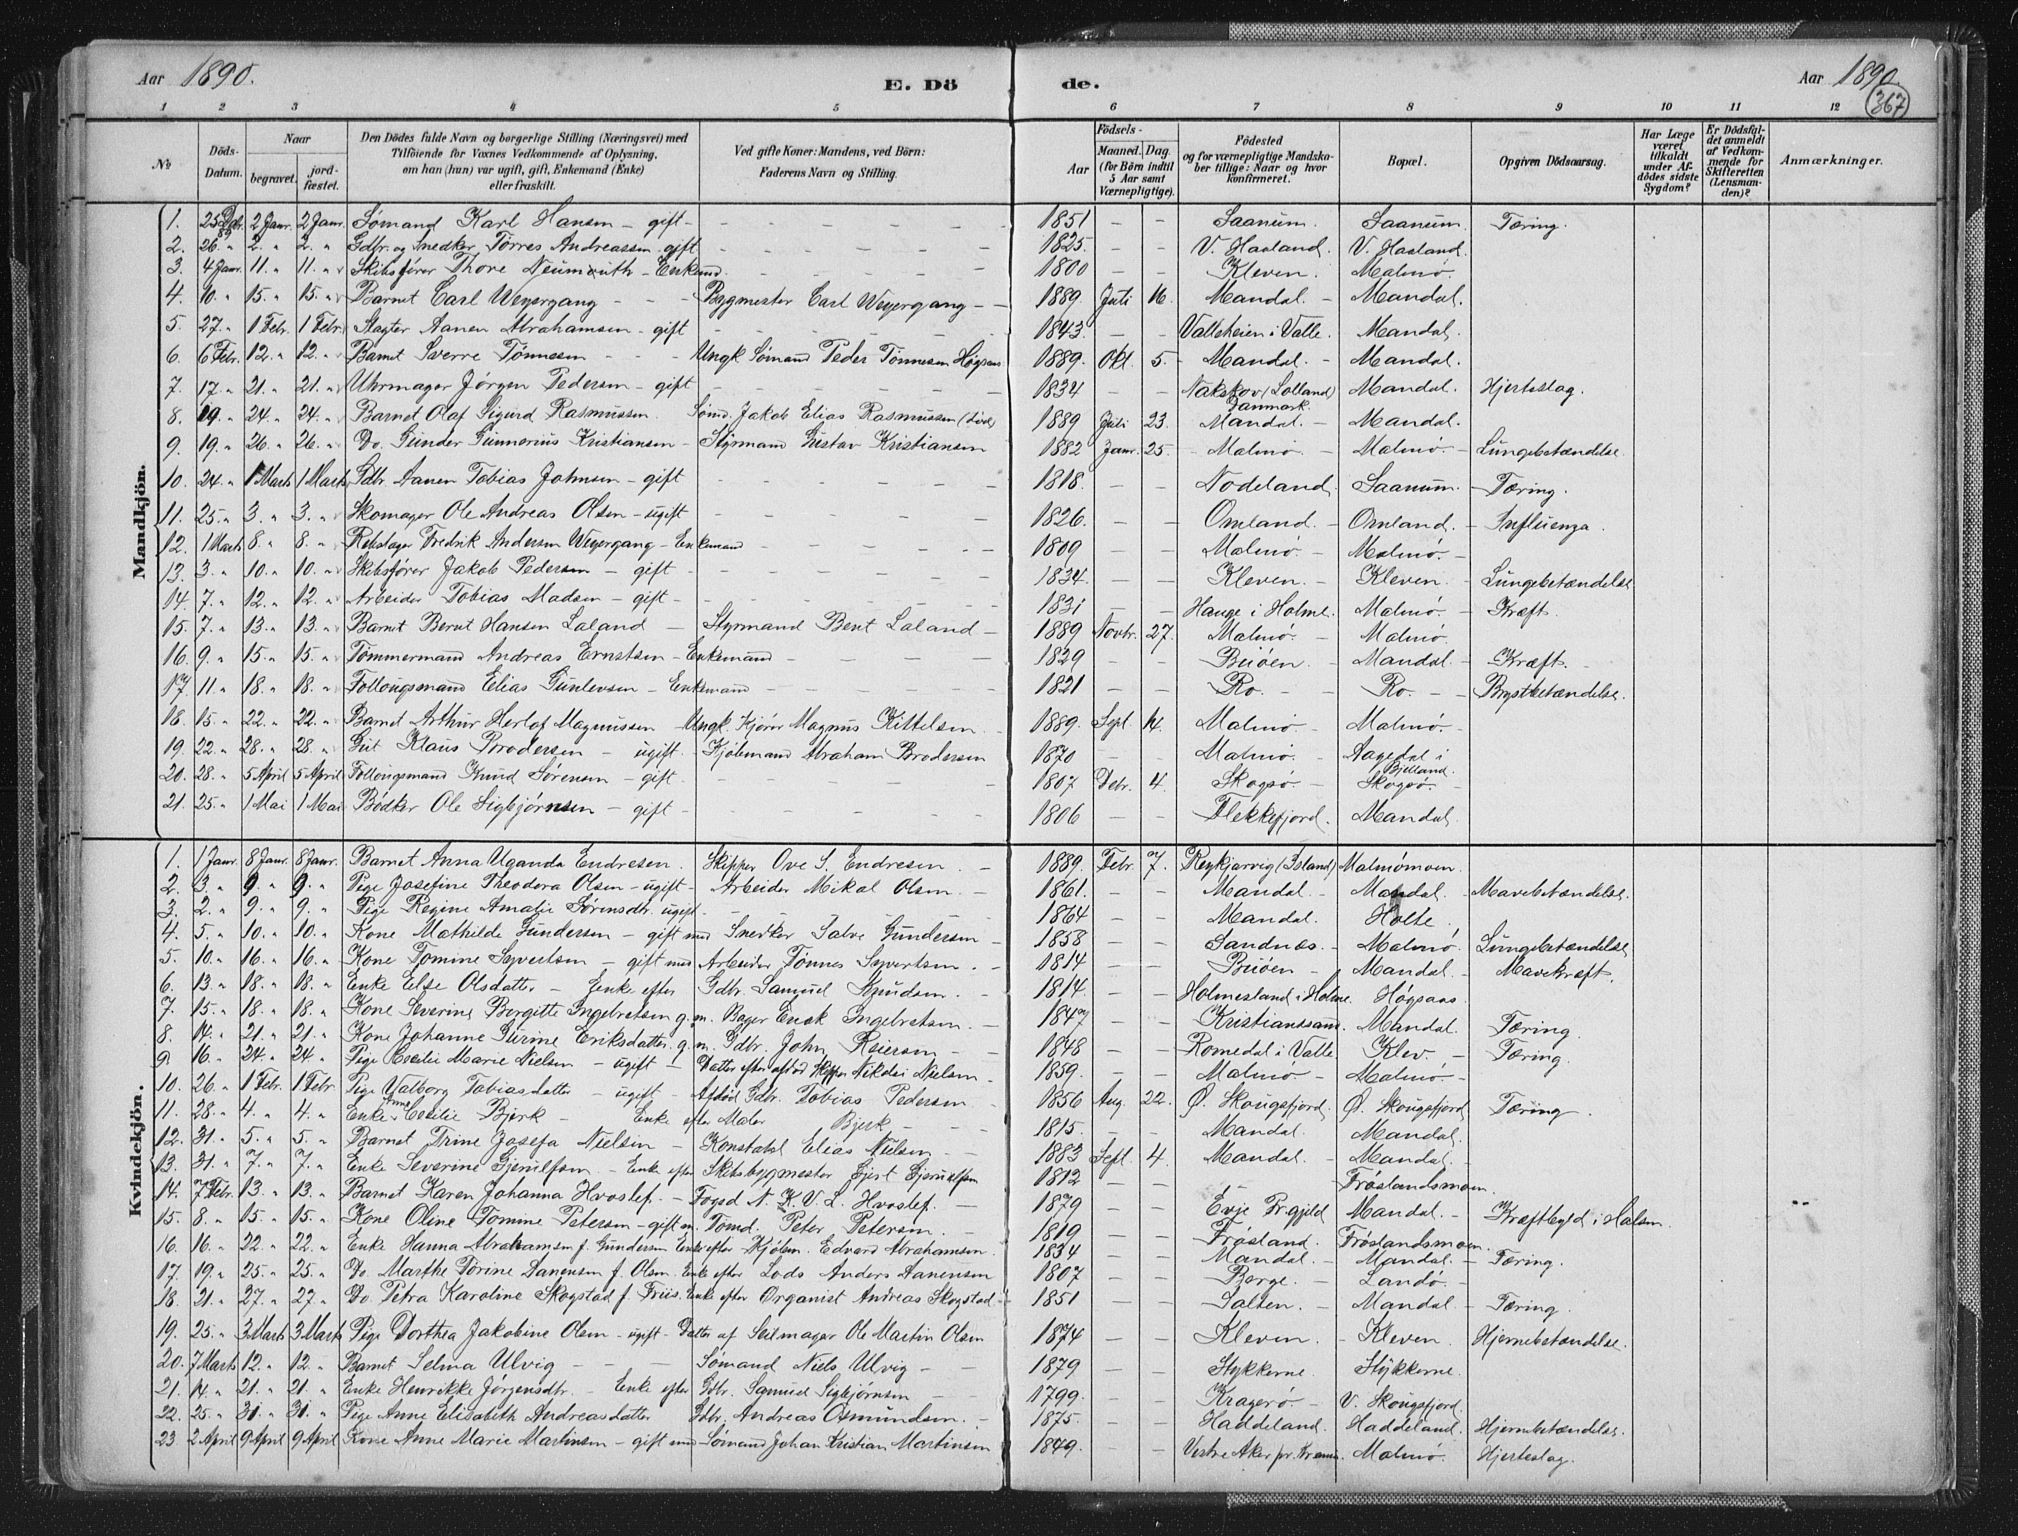 Aar 1890.
E. Dö
de.
Aar 1890.
367
1 2 3 4 5 6 7 8 9 10 11 12
No
Döds-Datum.
Naar
begravet.
jord-fæstet.
Den Dödes fulde Navn og borgerlige Stilling (Næringsvei) med
Tilföiende for Voxnes Vedkommende af Oplysning,
om han (hun) var ugift, gift, Enkemand (Enke)
eller fraskilt.
Ved gifte Koner: Mandens, ved Börn:
Faderens Navn og Stilling.
Födsels-
Aar
Maaned. Dag.
(for Börn indtil 5 Aar samt Værnepligtige).
Födested
og for værnepligtige Mandska-
ber tillige: Naar og hvor
konfirmeret.
Bopæl.
Opgiven Dödsaarsag.
Har Læge været tilkaldt under Af-dödes sidste Sygdom?
Er Dödsfal-det anmeldt af Vedkom-mende for Skifteretten (Lensman-den)?
Anmærkninger.
Mandkjön.
1. 25 Dbr. 89 2 Janr. 2 Janr. Sømand Karl Hansen – gift – 1851 – – Saanum. Saanum – Tæring.
2. 26. " 2. " 2. " Gdbr. og Snedker Tørres Andreassen gift 1825. – – V. Haaland. V. Haaland.
3. 4 Janr. 11. " 11. " Skibsfører Thore Neumouth – Enkemd. 1800 – – Kleven. Malmö.
4. 10. " 15. " 15. " Barnet Carl Weyergang – – Bygmester Carl Weyergang – – 1889. Juli 16. Mandal. – Mandal.
5. 27. " 1 Febr. 1 Febr. Slagter Aanen Abrahamsen – gift 1843 – – Valleheien i Valle. Mandal.
6. 6 Febr. 12. " 12. " Barnet Sverre Tönnesen – – Ungk Sømand Peder Tönnesen Högsaas 1889. Okt. 5. Mandal. – Mandal.
7. 17. " 21. " 21. " Uhrmager Jörgen Pedersen – gift 1834 – – Nakskov (Lolland) Danmark. Mandal. Hjerteslag.
8. 19. " 24. " 24. " Barnet Olaf Sigurd Rasmussen. Sömd. Jakob Elias Rasmussen (død) 1889 Juli 23. Mandal. – Mandal.
9. 19. " 26. " 26. " Do. Gunder Gunnerius Kristiansen – Styrmand Gustav Kristiansen 1882 Janr. 25. – Malmö. – Malmö. – Lungebetændelse.
10. 24. " 1 Marts 1 Marts Gdbr. Aanen Tobias Johnsen – gift 1818. – – Nodeland. Saanum. – Tæring.
11. 25. " 3. " 3. " Skomager Ole Andreas Olsen – ugift 1826. – – Omland. – Omland. – Influenza.
12. 1 Marts 8. " 8. " Rebslager Fredrik Andersen Weyergang – Enkemand 1809 – – Malmö. – Malmö. –
13. 3. " 10. " 10. " Skibsfører Jakob Pedersen – gift 1834. – – Kleven. – Kleven. – Lungebetændelse
14. 7. " 12. " 12. " Arbeider Tobias Madsen – gift – 1831 – – Hauge i Holme. Malmö. – Kræft.
15. 7. " 13. " 13. " Barnet Bernt Hansen Laland – Styrmand Bent Laland – 1889 Novbr. 27. Malmö. – Malmö.
16. 9. " 15. " 15. " Tømmermand Andreas Ernstsen – Enkemand 1829 – – Buöen. – Mandal. – Kræft.
17. 11. " 18. " 18. " Follougsmand Elias Gunlevsen – Enkemand 1821 – – Ro. – – Ro. – – Brystbetændelse.
18. 15. " 22. " 22. " Barnet Arthur Herlof Magnussen – Ungk. Kjörer Magnus Kittelsen. 1889. Sept. 14. Malmö. – Malmö.
19. 22. " 28. " 28. " Gut Klaus Brodersen – ugift. Kjöbmand Abraham Brodersen 1870 – – Malmö. – Aagedal i Bjelland.
20. 28. " 5 April 5 April Follougsmand Knud Sörensen – gift – 1807 Debr. 4. Skogsö. – Skogsö.
21. 25. " 1 Mai 1 Mai Bødker Ole Sigbjørnsen – gift – 1806 – – Flekkefjord. Mandal.
Kvindekjön.
1. 1 Janr. 8 Janr. 8 Janr. Barnet Anna Uganda Endresen. Skipper Ove S. Endresen. – 1889. Febr. 7. Reykjarvig (Island) Malmömoen.
2. 3. " 9. " 9. " Pige Josefine Theodora Olsen – ugift – Arbeider Mikal Olsen. – 1861. – – Mandal. – Mandal. – Mavebetændelse.
3. 2. " 9. " 9. " Pige Regine Amalie Sørensdtr. ugift – 1864 – – Mandal. Holte.
4. 5. " 10. " 10. " Kone Mathilde Gundersen – gift med Snedker Salve Gundersen – 1858 – – Sandnæs. – Malmö. Lungebetændelse
5. 10. " 16. " 16. " Kone Tomine Syvertsen – gift med Arbeider Tönnes Syvertsen. – 1814 – – Buöen – Mandal. – Mavekræft.
6. 13. " 18. " 18. " Enke Else Olsdatter – Enke efter Gdbr. Samuel Knudsen. – 1814. – – Holmesland i Holme. Högsaas.
7. 15. " 18. " 18. " Kone Severine Bergitte Ingebretsen g. m. Bager Enok Ingebretsen. – 1847 – – Kristianssand. Mandal. Tæring.
8. 14. " 21. " 21. " Kone Johanne Gurine Eriksdatter g. m. Gdbr. John Reiersen – 1848 – – Romedal i Valle Klev. – Tæring.
9. 16. " 24. " 24. " Pige Cecilie Marie Nielsen – ugift – Datter efter afdød Skipper Nikolai Nielsen. 1859. – – Malmö. – Malmö. –
10. 26. " 1 Febr. 1 Febr. Pige Valborg Tobiasdatter – ugift – Afdød Gdbr. Tobias Pedersen – 1856 Aug. 22. Ø. Skougsfjord. Ø. Skougsfjord Tæring.
11. 28. " 4. " 4. " Enke Anne Cecilie Bjerk – Enke efter Maler Bjerk – 1815. – – Mandal. Mandal.
12. 31. " 5. " 5. " Barnet Trine Josefa Nielsen – Konstabel Elias Nielsen. 1883 Sept. 4. Mandal. – Mandal.
13. 31. " 7. " 7. " Enke Severine Gjerulfsen – Enke efter Skibsbygmester Gjert Gjerulfsen 1812 – – – Frøslandsmoen.
14. 7 Febr. 13. " 13. " Barnet Karen Johanna Hvoslef. – Fogd N. K. V. L. Hvoslef. – 1879 – – Evje Pr.gjeld Mandal. –
15. 8. " 15. " 15. " Kone Oline Tomine Petersen – gift m. Tømd. Peter Petersen. 1819 – – Frøsland. Frøslandsmoen. Kræftbyld i Halsen.
16. 16. " 22. " 22. " Enke Hanna Abrahamsen f. Gundersen Enke efter Kjöbm. Edvard Abrahamsen. 1834 – – Mandal. – Mandal. – Tæring.
17. 19. " 25. " 25. " Do. Marthe Torine Aanensen f. Olsen. Enke efter Lods Anders Aanensen 1807 – – Berge. – Landö. –
18. 21. " 27. " 27. " Do. Petra Karoline Skogstad f. Friis. Enke efter Organist Andreas Skogstad – 1851 – – Salten. – Mandal – Tæring.
19. 25. " 3 Marts 3 Marts Pige Dorthea Jakobine Olsen – ugift – Datter af Seilmager Ole Martin Olsen 1874 – – Kleven. – Kleven Hjernebetændelse.
20. 7 Marts 12. " 12. " Barnet Selma Ulvig – – Sømand Niels Ulvig – – 1879 – – Stykkerne. Stykkerne.
21. 14. " 21. " 21. " Enke Henrikke Jørgensdtr. – Enke efter Gdbr. Samuel Sigbjørnsen – – 1799. – – Kragerö – V. Skougsfjord.
22. 25. " 31. " 31. " Pige Anne Elisabeth Andreasdatter Gdbr. Andreas Osmundsen. – 1875. – – Haddeland. Haddeland. Hjernebetændelse.
23. 2 April 9 April 9 April Kone Anne Marie Martinsen – gift med Sømand Johan Kristian Martinsen 1849. – – Vestre Aker pr. Malmö. Hjerteslag.